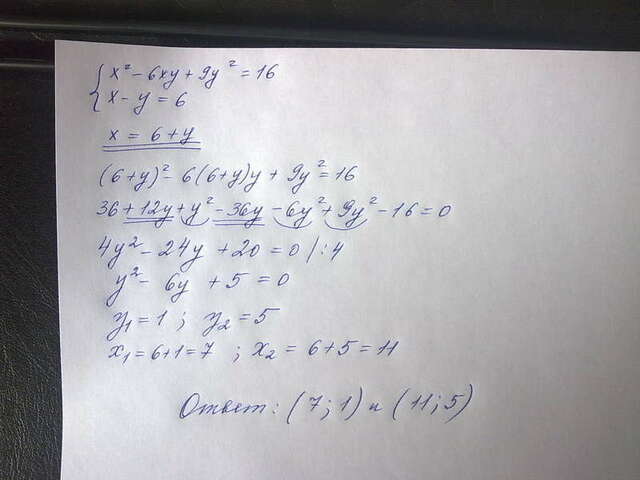 { x² - 6xy + 9y² = 16
x - y = 6
x = 6 + y
(6+y)² - 6(6+y)y + 9y² = 16
36 + 12y + y² - 36y - 6y² + 9y² - 16 = 0
4y² - 24y + 20 = 0 /:4
y² - 6y + 5 = 0
y₁ = 1 ; y₂ = 5
x₁ = 6+1 = 7 ; x₂ = 6+5 = 11
Ответ: (7; 1) и (11; 5)